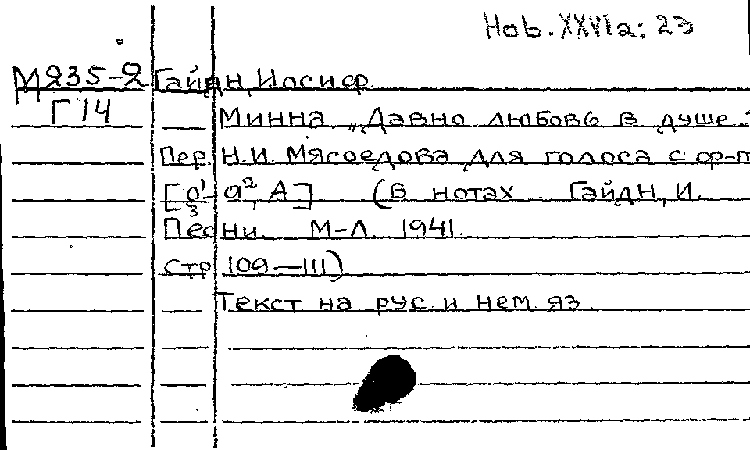 Hob. XXVIa: 23
М235-2 Гайдн, Иосиф
Г14
Минна „Давно любовь в душе
Пер. Н.И. Мясоедова для голоса с ф-п
A] (В нотах Гайдн, И.
Песни. М-Л. 1941.
стр 109–111)
Текст на рус. и нем. яз.